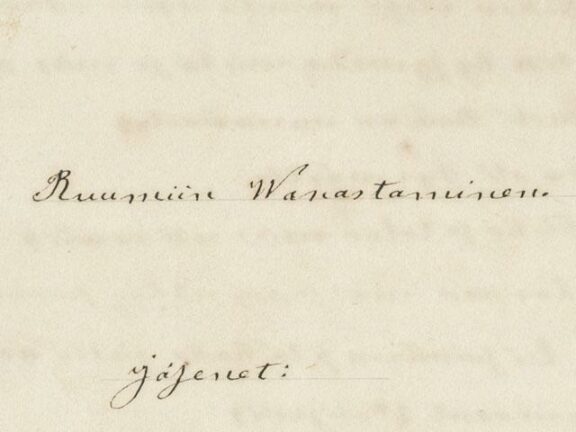 Ruumiin Warastaminen.
Jäsenet: